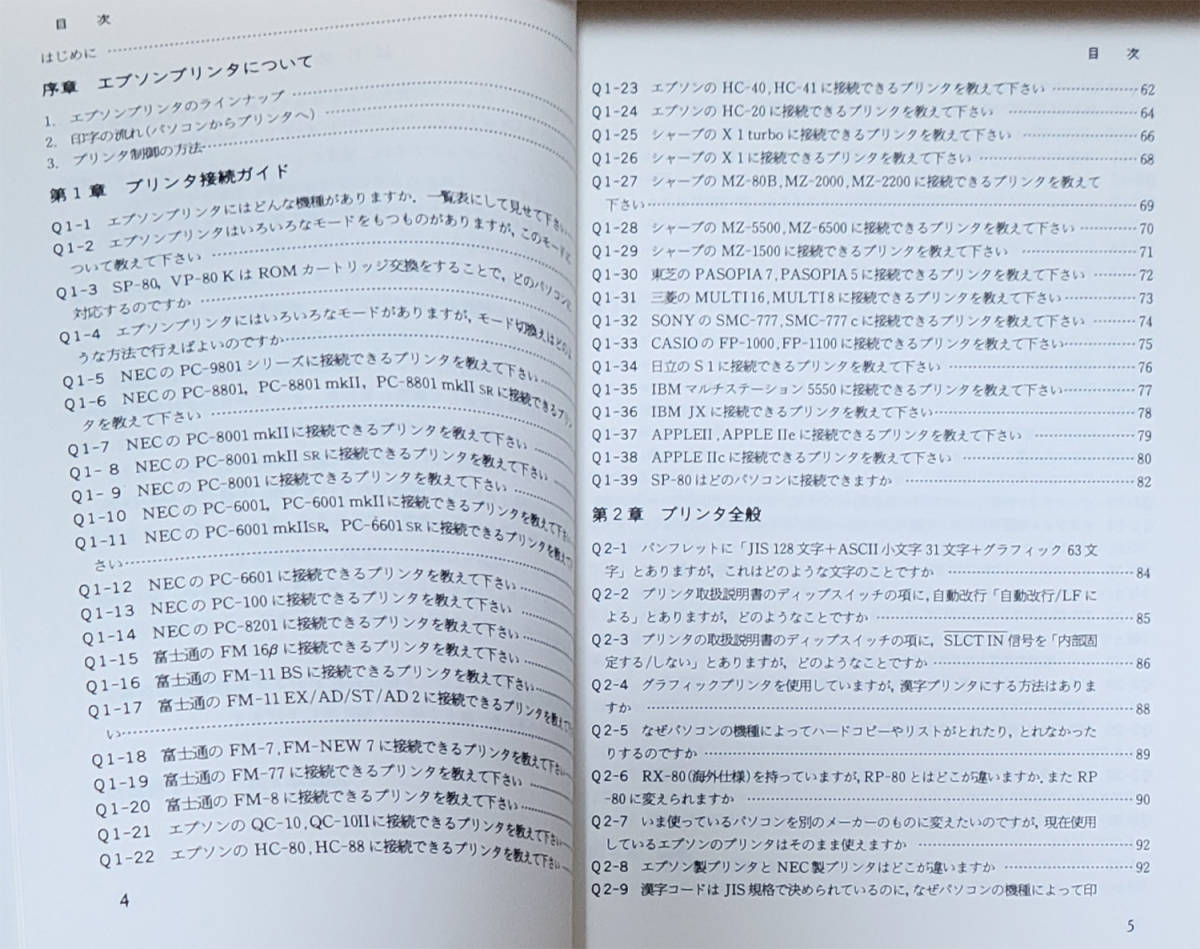 目 次
はじめに
序章 エプソンプリンタについて
1. エプソンプリンタのラインナップ
2. 印字の流れ(パソコンからプリンタへ)
3. プリンタ制御の方法
第1章 プリンタ接続ガイド
Q1-1 エプソンプリンタにはどんな機種がありますか．一覧表にして見せて下さい
Q1-2 エプソンプリンタはいろいろなモードをもつものがありますが，このモードに
ついて教えて下さい
Q1-3 SP-80，VP-80KはROMカートリッジ交換をすることで，どのパソコンに
対応するのですか
Q1-4 エプソンプリンタにはいろいろなモードがありますが，モード切換えはどのよ
うな方法で行えばよいのですか
Q1-5 NECのPC-9801シリーズに接続できるプリンタを教えて下さい
Q1-6 NECのPC-8801，PC-8801mkII，PC-8801mkII SRに接続できるプリン
タを教えて下さい
Q1-7 NECのPC-8001mkIIに接続できるプリンタを教えて下さい
Q1-8 NECのPC-8001mkII SRに接続できるプリンタを教えて下さい
Q1-9 NECのPC-8001に接続できるプリンタを教えて下さい
Q1-10 NECのPC-6001，PC-6001mkIIに接続できるプリンタを教えて下さい
Q1-11 NECのPC-6001mkIISR，PC-6601SRに接続できるプリンタを教えて下
さい
Q1-12 NECのPC-6601に接続できるプリンタを教えて下さい
Q1-13 NECのPC-100に接続できるプリンタを教えて下さい
Q1-14 NECのPC-8201に接続できるプリンタを教えて下さい
Q1-15 富士通のFM 16βに接続できるプリンタを教えて下さい
Q1-16 富士通のFM-11 BSに接続できるプリンタを教えて下さい
Q1-17 富士通のFM-11 EX/AD/ST/AD2に接続できるプリンタを教えて下さ
い
Q1-18 富士通のFM-7，FM-NEW7に接続できるプリンタを教えて下さい
Q1-19 富士通のFM-77に接続できるプリンタを教えて下さい
Q1-20 富士通のFM-8に接続できるプリンタを教えて下さい
Q1-21 エプソンのQC-10，QC-10IIに接続できるプリンタを教えて下さい
Q1-22 エプソンのHC-80，HC-88に接続できるプリンタを教えて下さい
4
目 次
Q1-23 エプソンのHC-40，HC-41に接続できるプリンタを教えて下さい 62
Q1-24 エプソンのHC-20に接続できるプリンタを教えて下さい 64
Q1-25 シャープのX1turboに接続できるプリンタを教えて下さい 66
Q1-26 シャープのX1に接続できるプリンタを教えて下さい 68
Q1-27 シャープのMZ-80B，MZ-2000，MZ-2200に接続できるプリンタを教えて
下さい 69
Q1-28 シャープのMZ-5500，MZ-6500に接続できるプリンタを教えて下さい 70
Q1-29 シャープのMZ-1500に接続できるプリンタを教えて下さい 71
Q1-30 東芝のPASOPIA7，PASOPIA5に接続できるプリンタを教えて下さい 72
Q1-31 三菱のMULTI16，MULTI8に接続できるプリンタを教えて下さい 73
Q1-32 SONYのSMC-777，SMC-777cに接続できるプリンタを教えて下さい 74
Q1-33 CASIOのFP-1000，FP-1100に接続できるプリンタを教えて下さい 75
Q1-34 日立のS1に接続できるプリンタを教えて下さい 76
Q1-35 IBMマルチステーション5550に接続できるプリンタを教えて下さい 77
Q1-36 IBM JXに接続できるプリンタを教えて下さい 78
Q1-37 APPLEII，APPLE IIeに接続できるプリンタを教えて下さい 79
Q1-38 APPLE IIcに接続できるプリンタを教えて下さい 80
Q1-39 SP-80はどのパソコンに接続できますか 82
第2章 プリンタ全般
Q2-1 パンフレットに「JIS 128文字＋ASCII小文字31文字＋グラフィック63文
字」とありますが，これはどのような文字のことですか 84
Q2-2 プリンタ取扱説明書のディップスイッチの項に，自動改行「自動改行/LFに
よる」とありますが，どのようなことですか 85
Q2-3 プリンタの取扱説明書のディップスイッチの項に，SLCT IN信号を「内部固
定する/しない」とありますが，どのようなことですか 86
Q2-4 グラフィックプリンタを使用していますが，漢字プリンタにする方法はありま
すか 88
Q2-5 なぜパソコンの機種によってハードコピーやリストがとれたり，とれなかった
りするのですか 89
Q2-6 RX-80(海外仕様)を持っていますが，RP-80とはどこが違いますか．またRP
-80に変えられますか 90
Q2-7 いま使っているパソコンを別のメーカーのものに変えたいのですが，現在使用
しているエプソンのプリンタはそのまま使えますか 92
Q2-8 エプソン製プリンタとNEC製プリンタはどこが違いますか 92
Q2-9 漢字コードはJIS規格で決められているのに，なぜパソコンの機種によって印
5